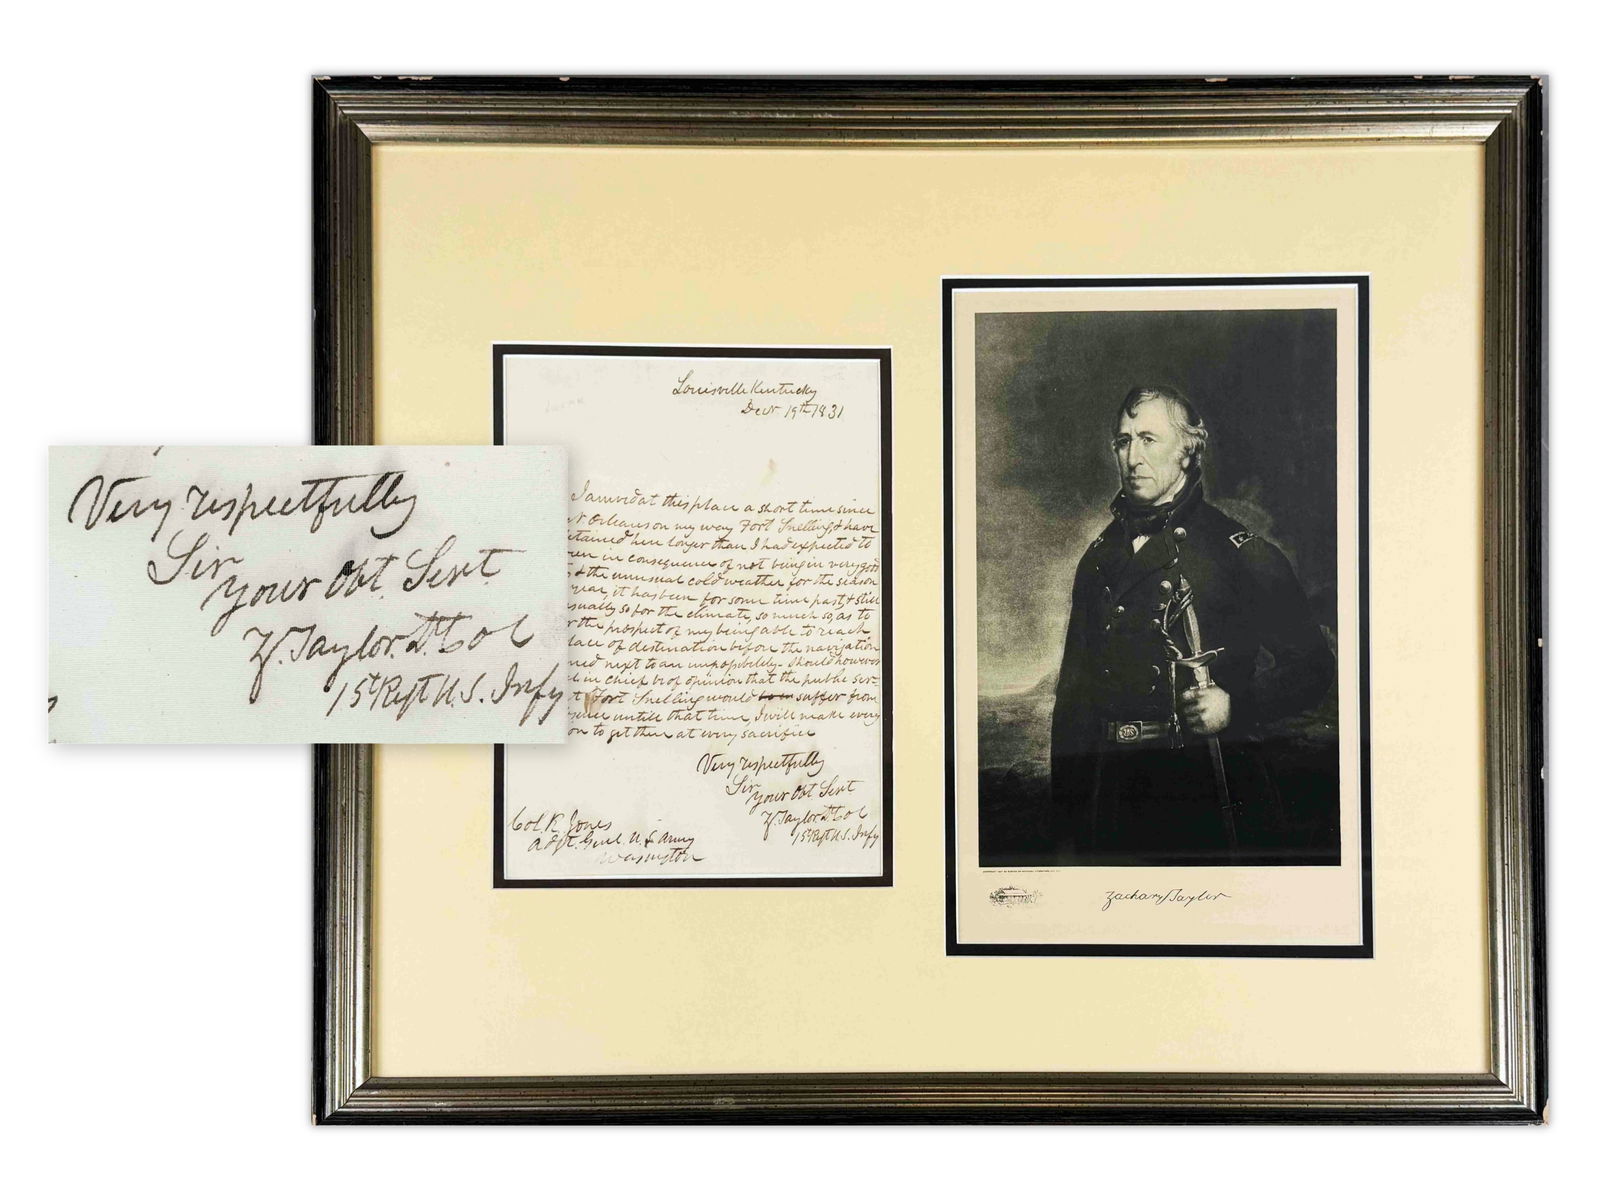 Louisville Kentucky
Decr 19th 1831
at this place a short time since
N. Orleans on my way Fort Snelling & have
here longer than I had expected to
in consequence of not being in very good
& the unusual cold weather for the season
year, it has been for some time past, & still
so for the climate, so much so, as to
the prospect of my being able to reach
of destination before the navigation
next to an impossibility - should however
in chief be of opinion that the public ser-
Fort Snelling would suffer from
untill that time, I will make every
to get there at every sacrifice
Very respectfully
Sir
your Obt Servt
Z. Taylor Lt Col
1st Regt U.S. Infy
Col R Jones
Adjt. Genl. U.S. Army
Wasington
Very respectfully
Sir
your Obt. Servt
Z. Taylor. Lt. Col
1st Regt U.S. Infy
US
Zachary Taylor